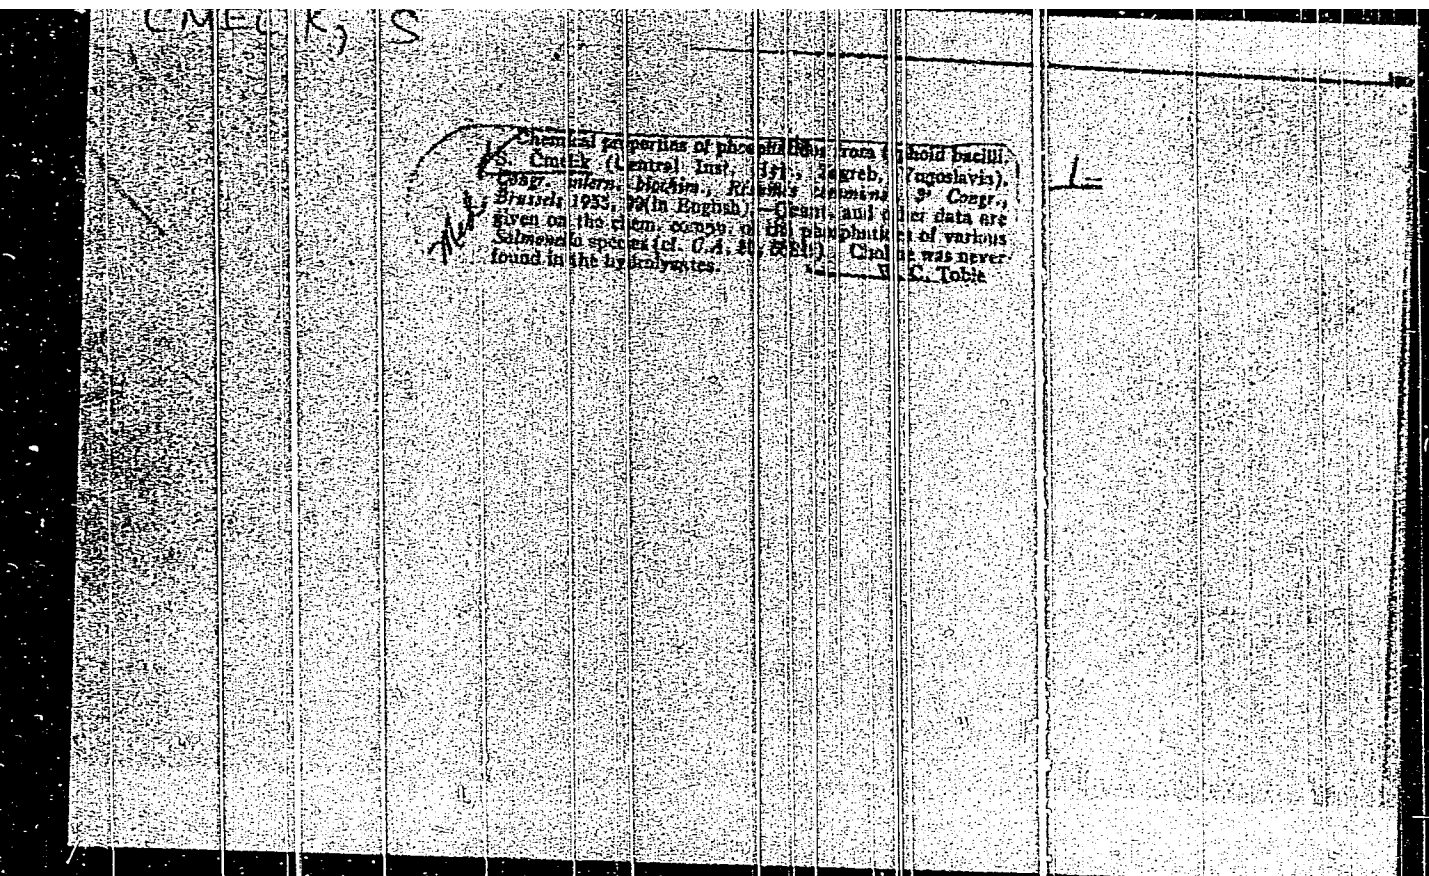 CMELIK, S
Chemical properties of phosphatides from typhoid bacilli.
S. Čmelik (Central Inst. Hyg., Zagreb, Yugoslavia).
Congr. intern. biochim., Résumés communs., 3e Congr.,
Brussels 1955, 99 (in English).—Quant. and other data are
given on the chem. compn. of the phosphatides of various
Salmonella species (cf. C.A. Choline was never
found in the hydrolyzates. C. Tobie